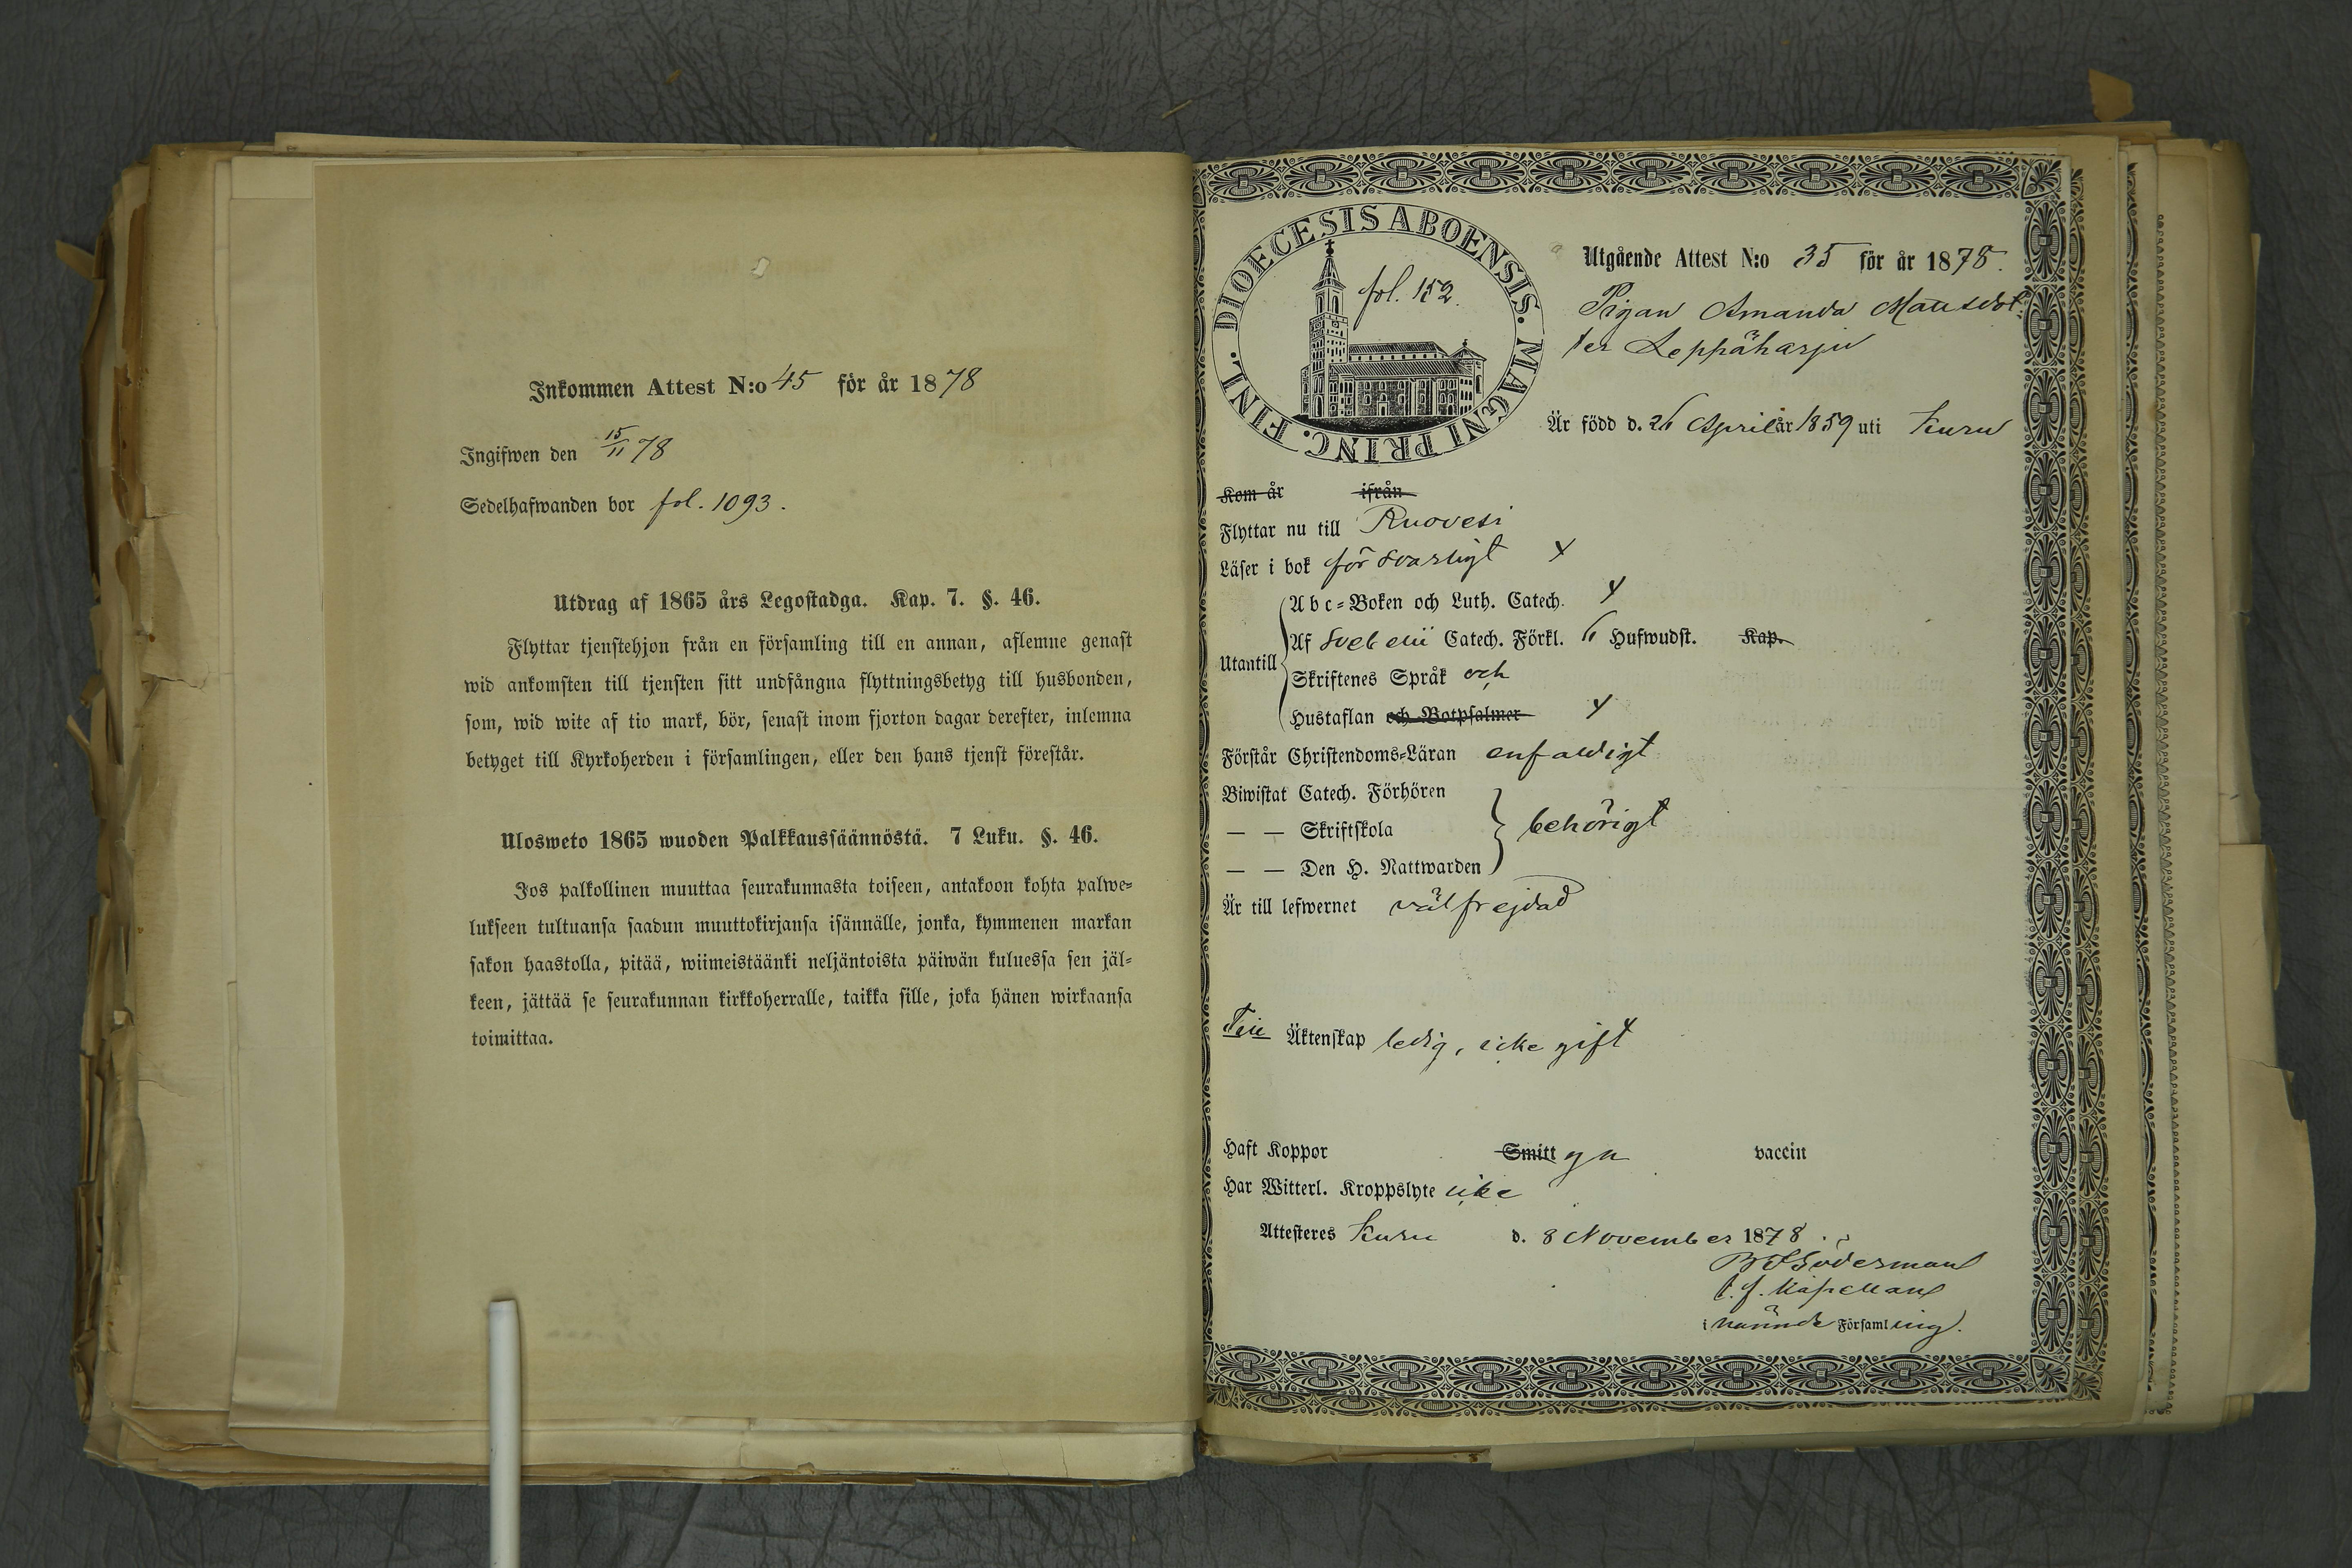 Inkommen Attest N:o 45 för år 1878
Ingifwen den 15/11 78
Sedelhafwanden bor fol. 1093.
Utdrag af 1865 års Legostadga. Kap. 7. §. 46.
Flyttar tjenstehjon från en församling till en annan, aflemne genast
wid ankomsten till tjensten sitt undfångna flyttningsbetyg till husbonden,
som, wid wite af tio mark, bör, senast inom fjorton dagar derefter, inlemna
betyget till Kyrkoherden i församlingen, eller den hans tjenst förestår.
Ulosweto 1865 wuoden Palkkaussäännöstä. 7 Luku. §. 46.
Jos palkollinen muuttaa seurakunnasta toiseen, antakoon kohta palwe-
lukseen tultuansa saadun muuttokirjansa isännälle, jonka, kymmenen markan
sakon haastolla, pitää, wiimeistäänki neljäntoista päiwän kuluessa sen jäl-
keen, jättää se seurakunnan kirkkoherralle, taikka sille, joka hänen wirkaansa
toimittaa.
DIOECESIS ABOENSIS. MAGNI PRINC. FINL.
fol. 152.
Utgående Attest N:o 35 för år 1878.
Pigan Amanda Mattsdot-
ter Leppäharju
Är född d. 26 April år 1859 uti Kuru
Kom år ifrån
Flyttar nu till Ruovesi
Läser i bok försvarligt
Utantill
Abc-Boken och Luth. Catech.
Af Svebelii Catech. Förkl. 6 Hufwudst. Kap.
Skriftenes Språk och
Hustaflan och Botpsalmer
Förstår Christendoms-Läran enfaldigt
Biwistat Catech. Förhören
— — Skriftskola behörigt
— — Den H. Nattwarden
Är till lefwernet välfrejdad
Till Äktenskap ledig, icke gift
Haft Koppor Smitt gn vaccin
Har Witterl. Kroppslyte icke
Attesteres Kuru d. 8 November 1878.
Söderman
t. f. Kapellan
i nämnde Församling.